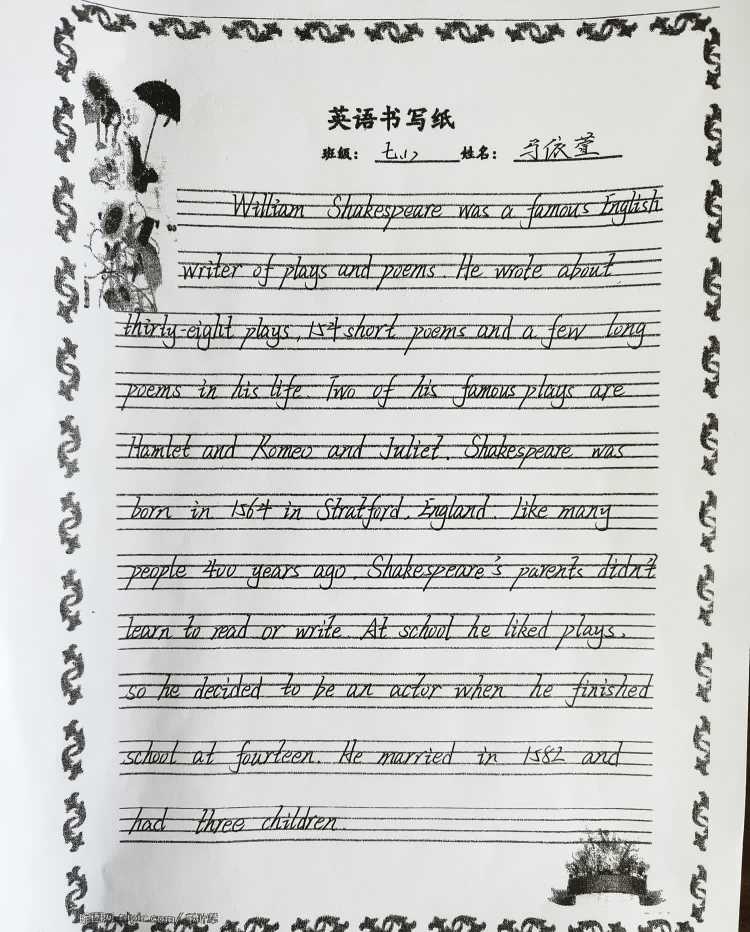 英语书写纸
班级： 七.(1) 姓名： 马依萱
William Shakespeare was a famous English
writer of plays and poems. He wrote about
thirty-eight plays, 154 short poems and a few long
poems in his life. Two of his famous plays are
Hamlet and Romeo and Juliet. Shakespeare was
born in 1564 in Stratford, England. Like many
people 400 years ago, Shakespeare's parents didn't
learn to read or write. At school he liked plays,
so he decided to be an actor when he finished
school at fourteen. He married in 1582 and
had three children.